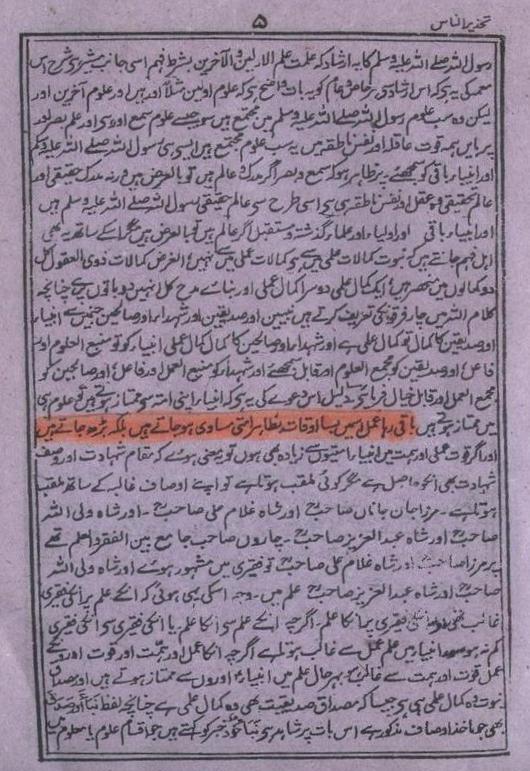 تحذیر الناس
۵
رسول اللہ صلے اللہ علیہ وسلم کا یہ ارشاد کہ علمت علم الاولین والآخرین بشرط فہم اسی جانب مشیر ہی شرح اس
معمے کی یہ ہی کہ اس ارشاد سی ہر خاص و عام کو یہ بات واضح ہی کہ علوم اولین مثلاً اور ہیں اور علوم آخرین اور
لیکن وہ سب علوم رسول اللہ صلے اللہ علیہ وسلم میں مجتمع ہیں سو جیسے علوم سمع اور ہی اور علم بصر اور
پر باین ہمہ قوت عاقلہ اور نفس ناطقہ میں یہ سب علوم مجتمع ہیں ایسی ہی رسول اللہ صلے اللہ علیہ وسلم
اور انبیاء باقی کو سمجھئے پر ظاہر ہو کہ سمع و بصر اگر مدرک و عالم ہیں تو بالعرض ہیں ورنہ مدرک حقیقی اور
عالم تحقیقی وہ عقل اور نفس ناطقہ ہی ہی اسی طرح سی عالم حقیقی رسول اللہ صلے اللہ علیہ وسلم ہیں
اور انبیاء باقی اور اولیاء اور علماء گذشتہ و مستقبل اگر عالم ہیں تو بالعرض ہیں مگر اسکے ساتھ یہ بھی
اہل فہم جانتے ہیں کہ نبوت کمالات علمی میں سے ہی کمالات عملی میں سے نہیں الغرض کمالات ذوی العقول کل
دو کمالوں میں منحصر ہیں ایک کمال علمی دوسرا کمال عملی اور بناے مدح کل انہیں دو باتوں پر ہے چنانچہ
کلام اللہ میں چار فرقونکی تعریف کرتے ہیں نبیین اور صدیقین اور شہداء اور صالحین جنمیں سے انبیاء
اور صدیقین کا کمال تو کمال علمی ہے اور شہداء اور صالحین کا کمال کمال عملی انبیاء کو تو منبع العلوم اور
فاعل اور صدیقین کو مجمع العلوم اور قابل سمجھئے اور شہداء کو منبع العمل اور فاعل اور صالحین کو
مجمع العمل اور قابل خیال فرمائیے دلیل اس دعوے کی یہ ہی کہ انبیاء اپنی امت سی ممتاز ہوتے ہیں تو علوم ہی
میں ممتاز ہوتے ہیں باقی رہا عمل اسمیں بسا اوقات بظاہر امتی مساوی ہو جاتے ہیں بلکہ بڑھ جاتے ہیں
اور اگر قوت عملی اور ہمت میں انبیاء امتیوں سے زیادہ بھی ہوں تو یہ معنی ہوے کہ مقام شہادت اور وصف
شہادت بھی انکو حاصل ہے مگر کوئی ملقب ہوتا ہے تو اپنے اوصاف غالبہ کے ساتھ ملقب
ہوتا ہے ۔ مرزا جان جاناں صاحبؒ اور شاہ غلام علی صاحبؒ ۔ اور شاہ ولی اللہ
صاحبؒ اور شاہ عبد العزیز صاحبؒ ۔ چاروں صاحب جامع بین الفقر والعلم تھے
پر مرزا صاحبؒ اور شاہ غلام علی صاحبؒ تو فقیری میں مشہور ہوے اور شاہ ولی اللہ
صاحبؒ اور شاہ عبد العزیز صاحبؒ علم میں ۔ وجہ اسکی یہی ہوئی کہ انکے علم پر انکی فقیری
غالب تھی اور انکی فقیری پر انکا علم ۔ اگرچہ انکے علم سی انکا علم یا انکی فقیری سی انکی فقیری
کم نہ ہو سو انبیاء میں علم عمل سے غالب ہوتا ہے اگرچہ انکا عمل اور ہمت اور قوت اورونکے
عمل قوت اور ہمت سے غالب ہو بہر حال علم میں انبیاء اوروں سے ممتاز ہوتے ہیں اور مصداق
نبوت وہ کمال علمی ہی ہی جیسا کہ مصداق صدیقیت بھی وہ کمال علمی ہے چنانچہ لفظ نبأ اور صدق
بھی جو ماخذ اوصاف مذکور ہے اس بات پر شاہد ہی نبأ خود خبر کو کہتے ہیں جو اقسام علوم یا معلوم میں